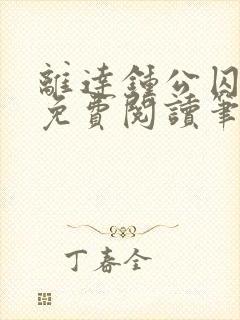 離達鍾公囚
免費閱讀筆
丁春全